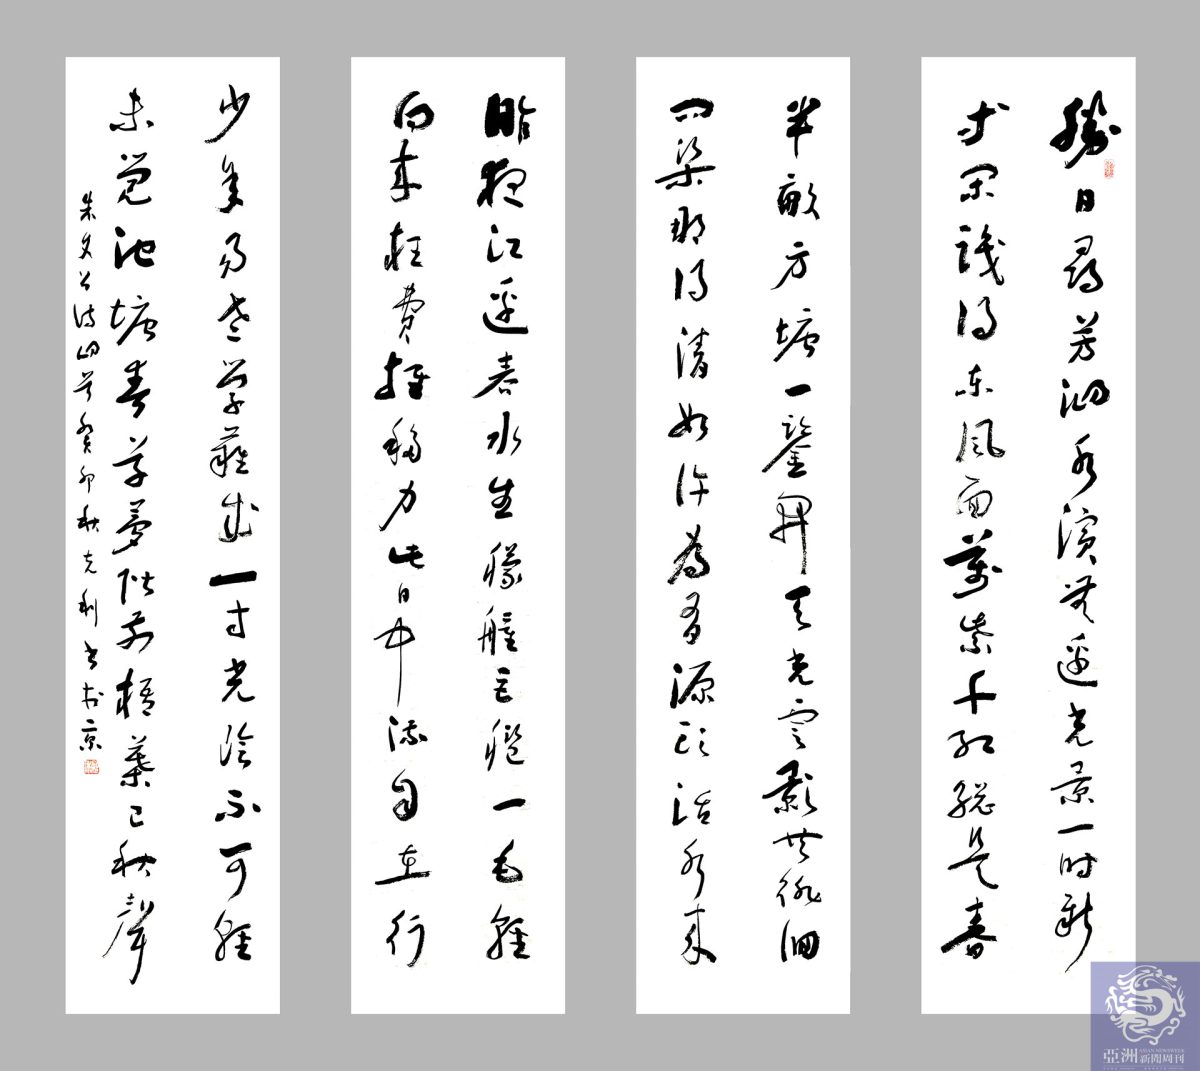 勝日尋芳泗水濱無邊光景一時新
等閑識得東風面萬紫千紅總是春
半畝方塘一鑒開天光雲影共徘徊
問渠那得清如許為有源頭活水來
昨夜江邊春水生艨艟巨艦一毛輕
向來枉費推移力此日中流自在行
少年易老學難成一寸光陰不可輕
未覺池塘春草夢階前梧葉已秋聲
朱文公詩四首癸卯秋克利書於京
亞洲 ASIAN NEWSWEEK 新聞周刊